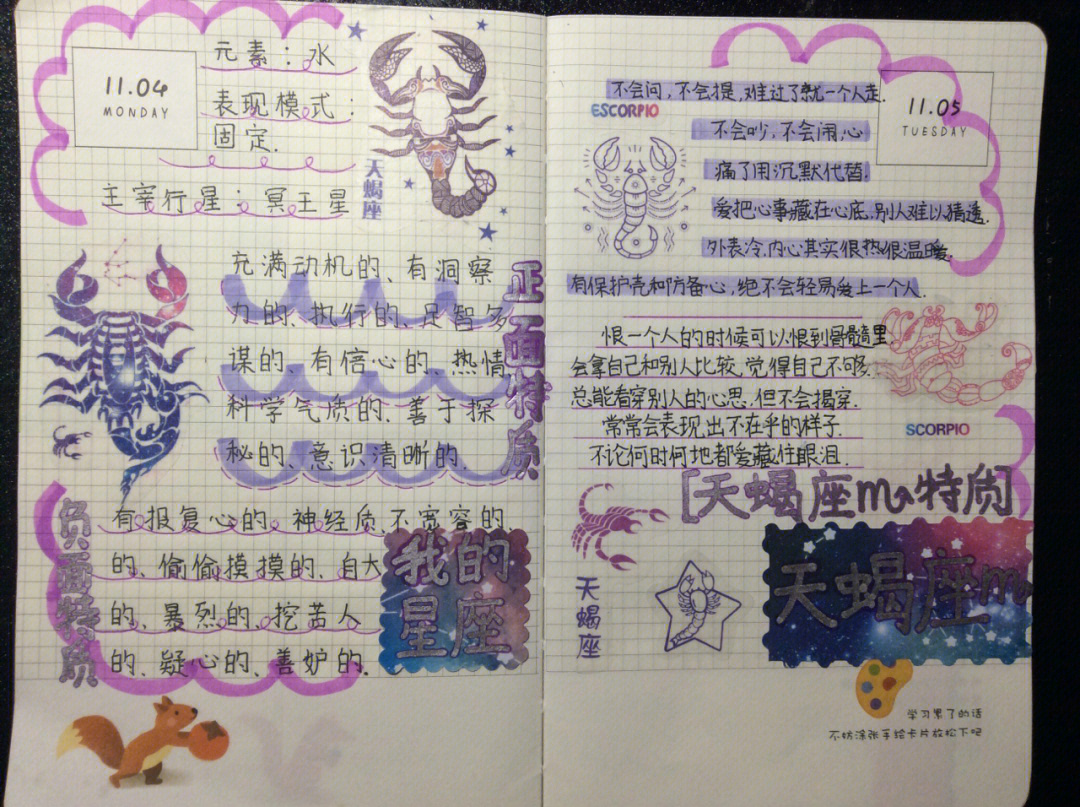 11.04
MONDAY
元素：水
表现模式：
固定.
主宰行星：冥王星
天蝎座
充满动机的、有洞察
力的、执行的、足智多
谋的、有信心的、热情
科学气质的、善于探
秘的、意识清晰的、
正面特质
有报复心的、神经质不宽容的、
的、偷偷摸摸的、自大
的、暴烈的、挖苦人
的、疑心的、善妒的.
负面特质
我的
星座
11.05
TUESDAY
不会问，不会提，难过了就一个人走.
ESCORPIO
不会吵，不会闹，心
痛了用沉默代替!
爱把心事藏在心底，别人难以猜透.
外表冷，内心其实很热很温暖.
有保护壳和防备心，绝不会轻易爱上一个人.
恨一个人的时候可以恨到骨髓里.
会拿自己和别人比较，觉得自己不够.
总能看穿别人的心思，但不会揭穿.
常常会表现出不在乎的样子.
不论何时何地都爱藏住眼泪.
SCORPIO
[天蝎座♏特质]
天蝎座
天蝎座♏
学习累了的话
不妨涂张手绘卡片放松下吧